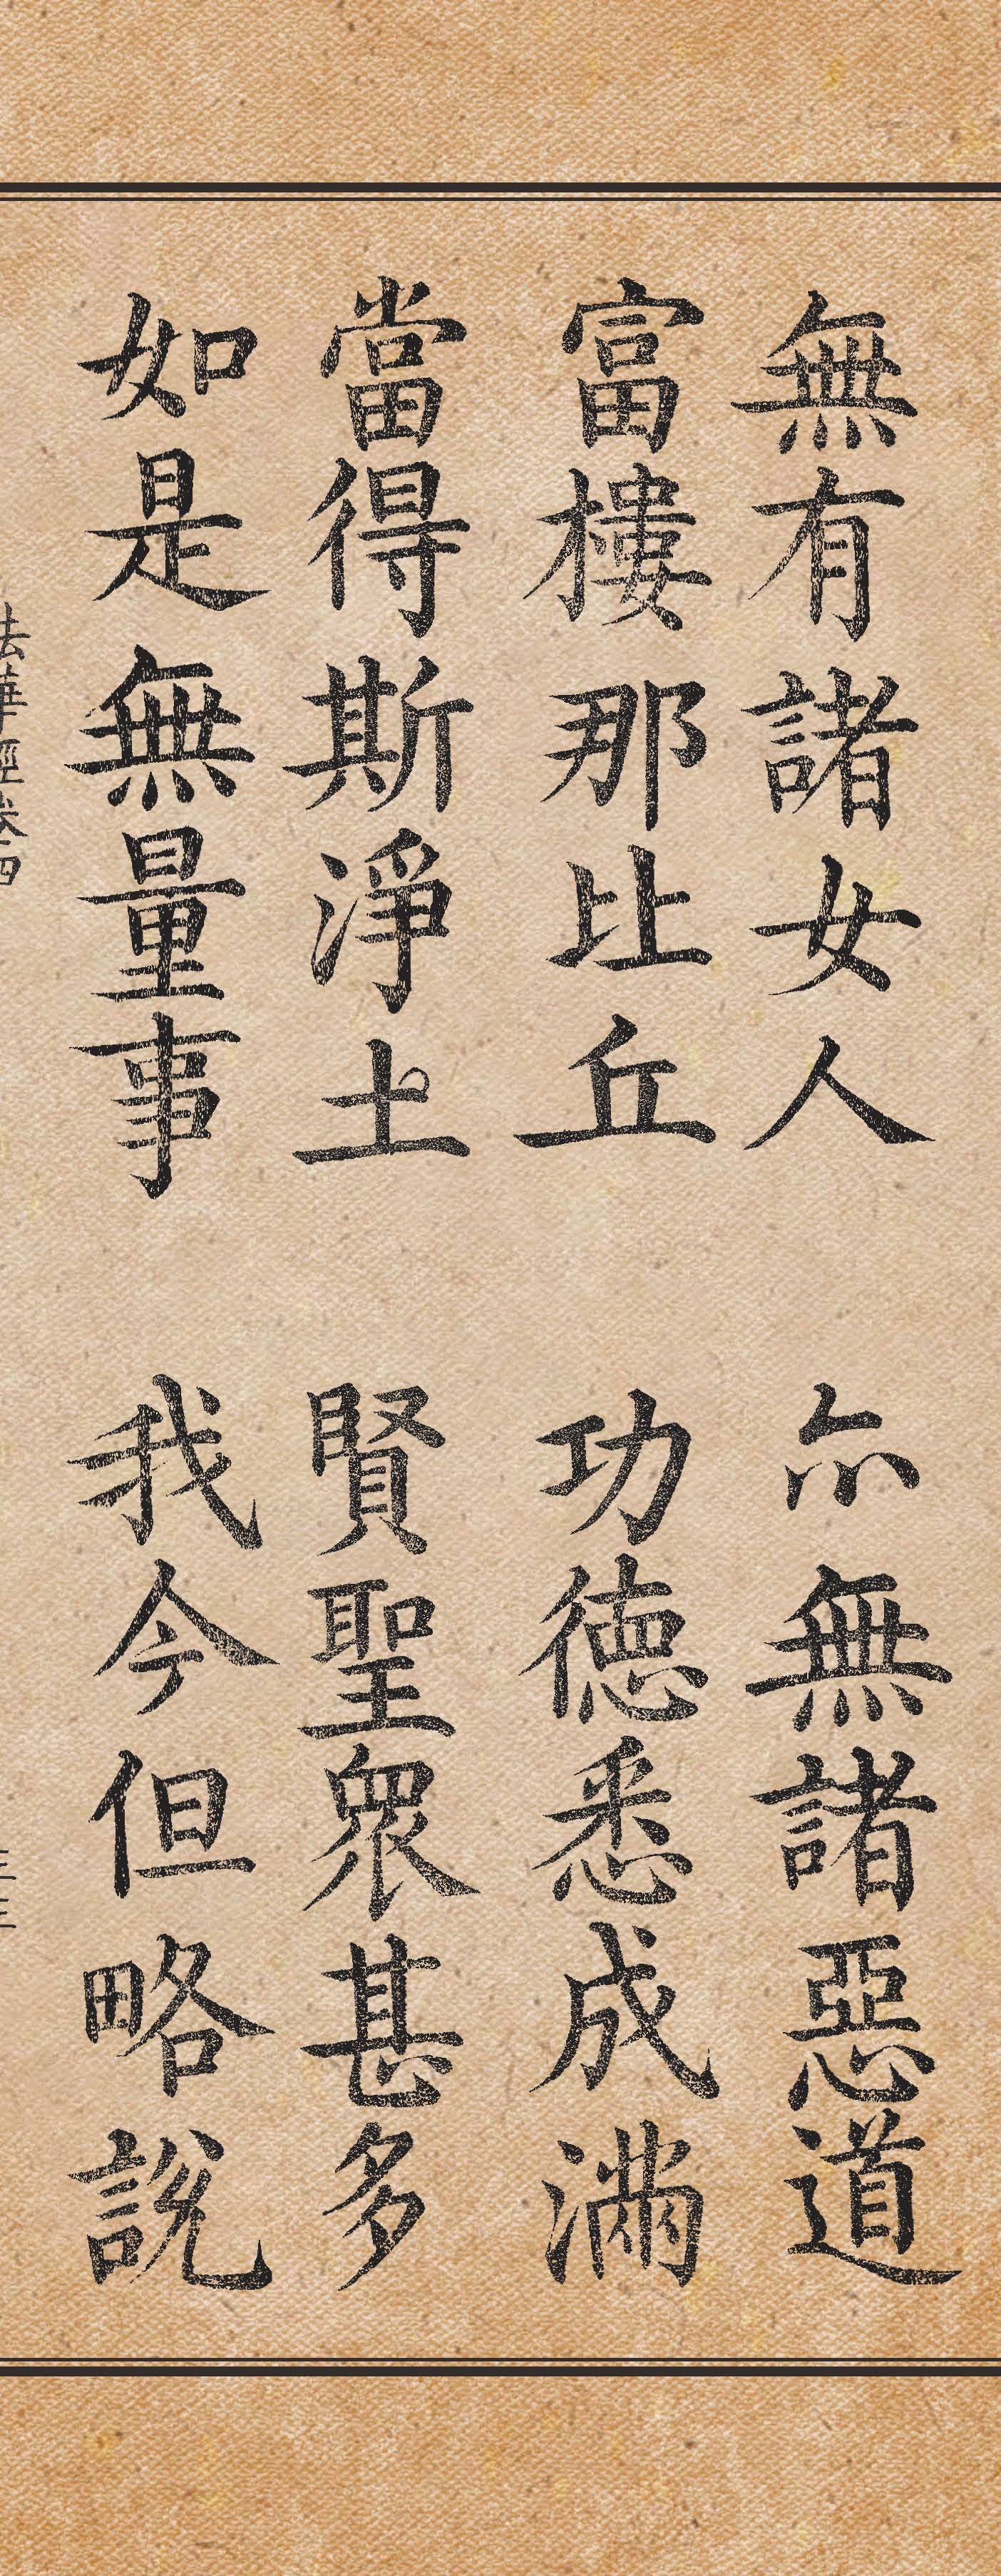 無有諸女人 尒無諸惡道
富樓那比丘 功德悉成滿
當得斯淨土 賢聖眾甚多
如是無量事 我今但略說
法華經卷四 三三